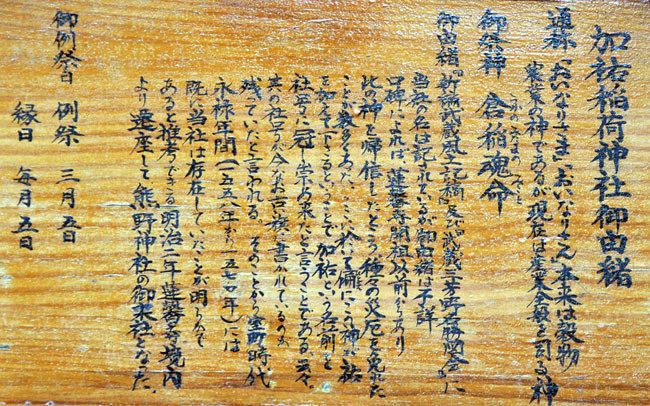 加祐稲荷神社御由緒
通称 「おいなりさま」「おいなりさん」本来は穀物
農業の神であるが現在は産業全般を司る神
御祭神 倉稲魂命
御由緒 『新編武蔵風土記稿』及『武蔵三芳野名勝図会』に
当社の名は記されているが御由緒は不詳
口碑によれば、蓮馨寺開祖以前からあり
此の神を帰信したところ種々の災厄を免れた
ことが数多くあった。ここに於て僕にこの神が祐
を加え下さるということで加祐という名前を
社号に冠し崇め来たと言うことである、云々。
其の社号が今なお古い旗に書かれているのが
残っていたと言われる。そのことから室町時代
永禄年間(一五五八年から一五七〇年)には
既に当社は存在していたことが明らかで
あると推考できる明治二年蓮馨寺境内
より遷座して熊野神社の御末社となった。
御例祭日 例祭 三月五日
縁日 毎月五日